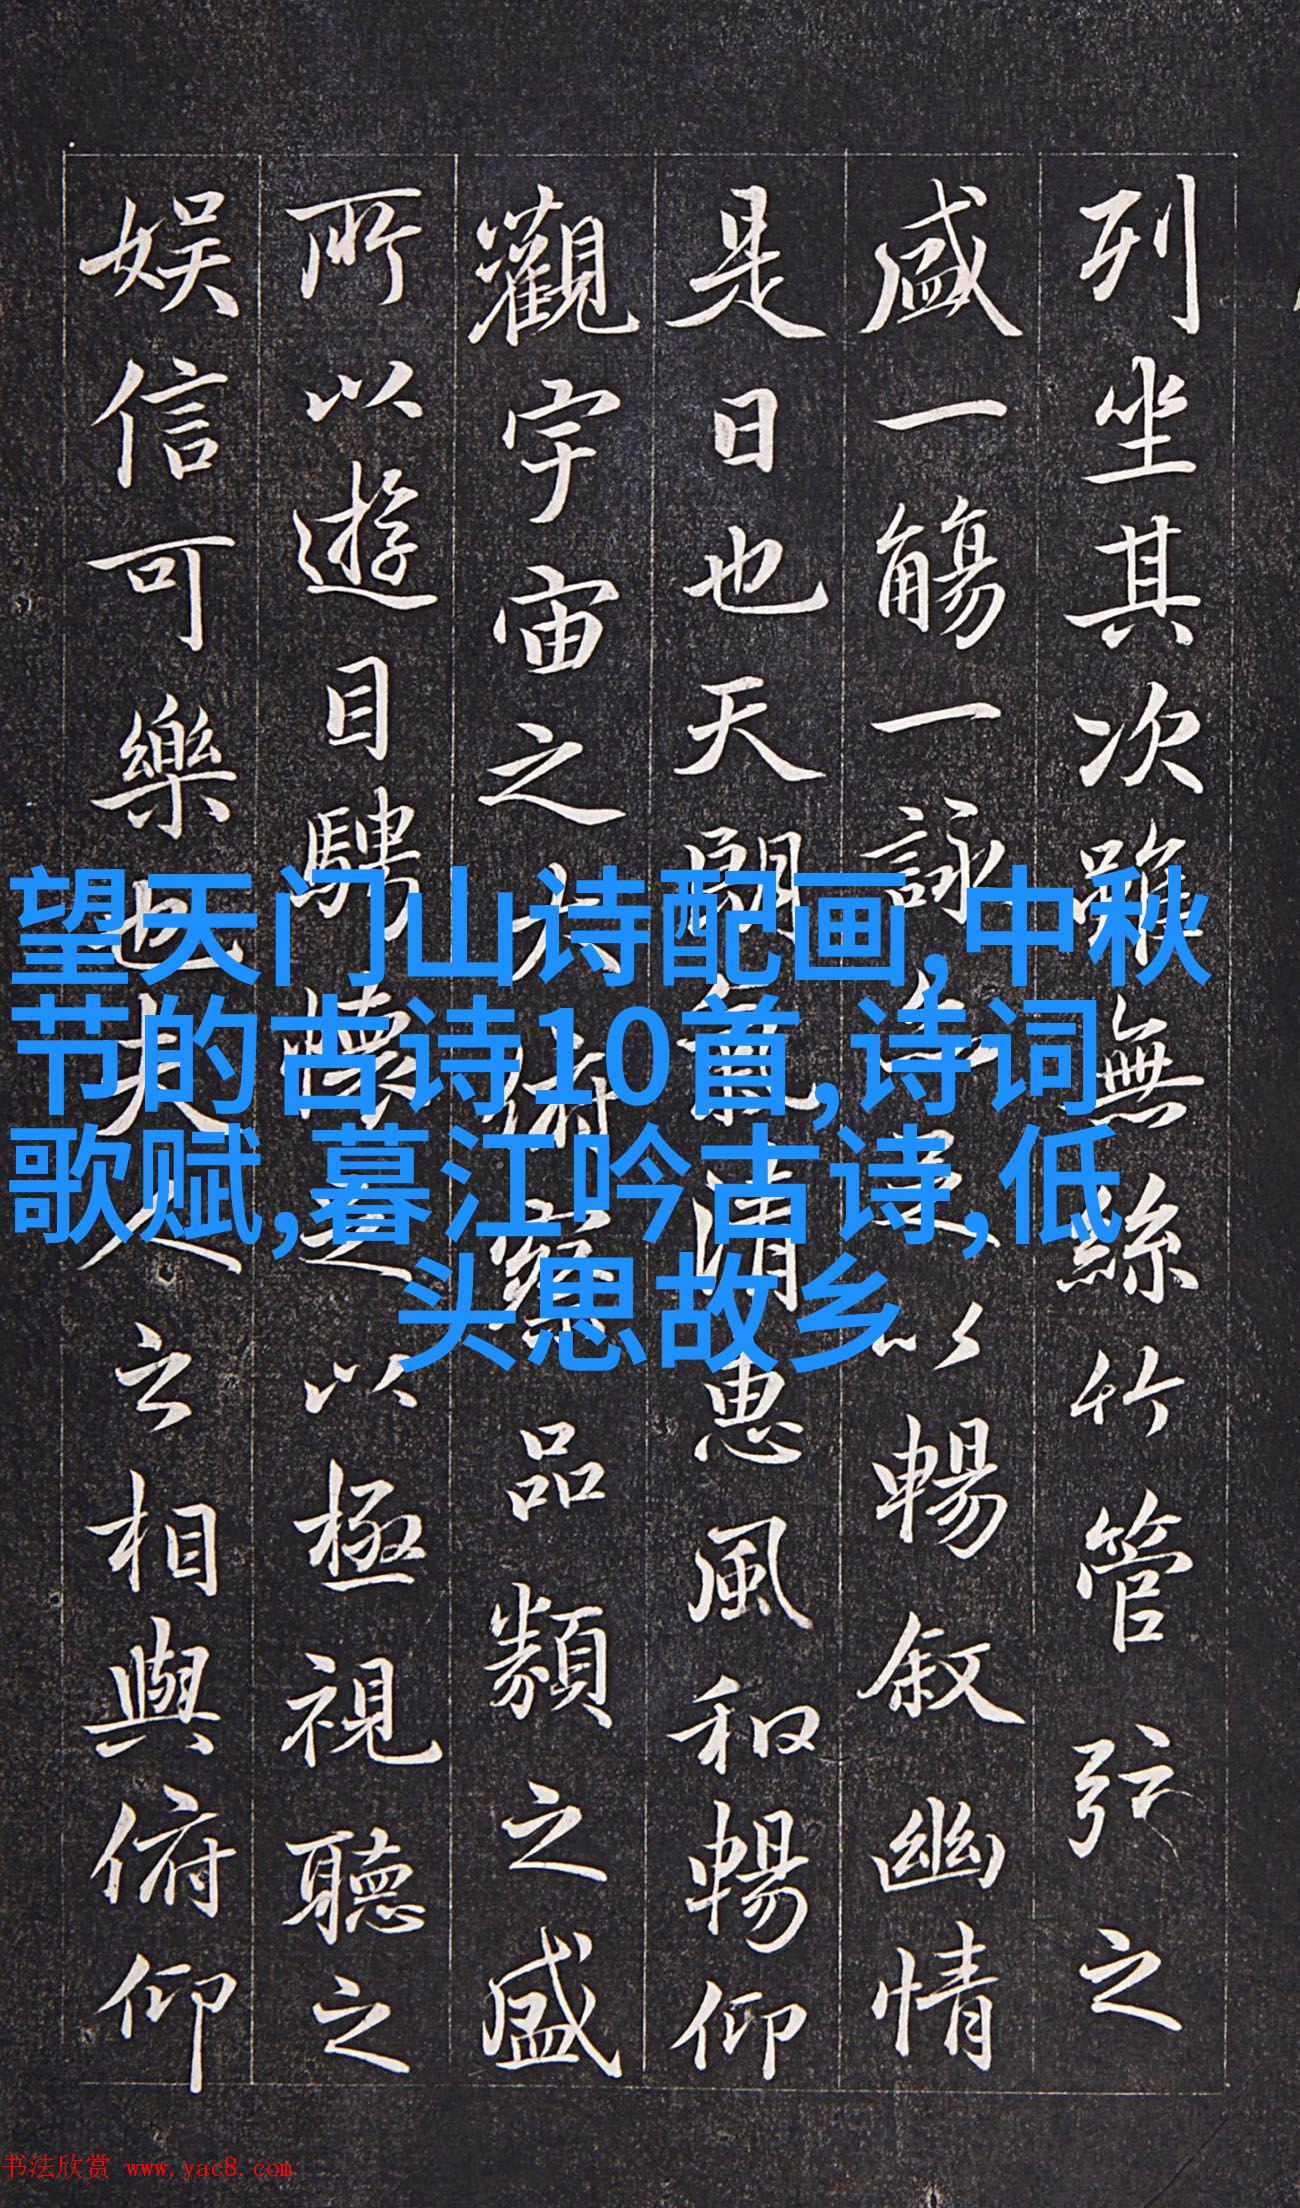 列坐其次雖無絲竹管弦之
盛一觴一詠亦足以暢敘幽情
是日也天朗氣清惠風和暢仰
觀宇宙之大俯察品類之盛
所以遊目騁懷足以極視聽之
娛信可樂也夫人之相與俯仰
望天门山诗配画,中秋
节的古诗10首,诗词
歌赋,暮江吟古诗,低
头思故乡
书法欣赏 www.yac8.com